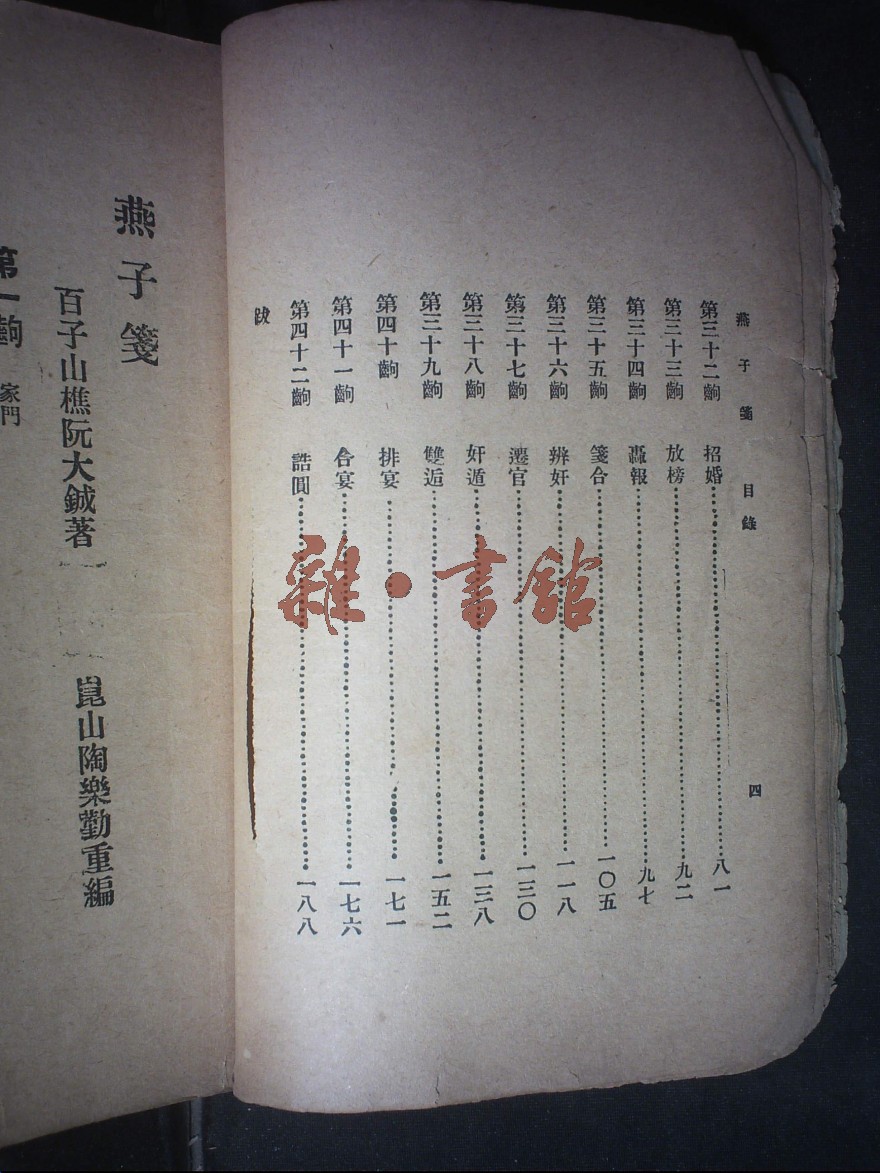 燕子箋 目錄 四
第三十二齣 招婚 八一
第三十三齣 放榜 九二
第三十四齣 轟報 九七
第三十五齣 箋合 一〇五
第三十六齣 辨奸 一一八
第三十七齣 遷官 一三〇
第三十八齣 奸遁 一三八
第三十九齣 雙逅 一五二
第四十齣 排宴 一七一
第四十一齣 合宴 一七六
第四十二齣 誥圓 一八八
跋
燕子箋
百子山樵阮大鋮著 崑山陶樂勤重編
第一齣 家門
雜·書館